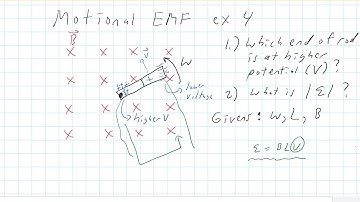 Motional EMF ex 4
B
v
W
lower
voltage
higher V
1.) Which end of rod
is at higher
potential (V) ?
2) What is |ε| ?
Givens: W, L, B
ε = BLV